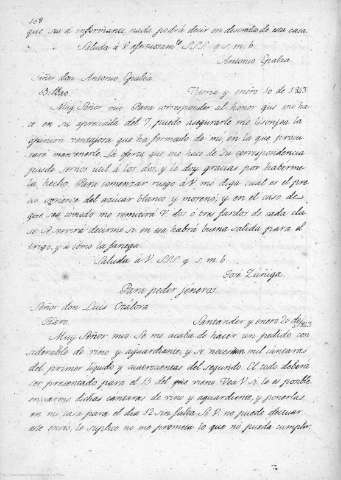 168
que sea a informarme, nada podrá decir en descrédito de esa casa
Saluda a V. afectuosamte S.S.S. q. s. m. b.
Antonio Egalia
Señor don Antonio Egalia
Bilbao
Viana y enero 10 de 1813
Muy Señor mio Para corresponder al honor que me ha
ce en su apreciada del 7, puedo asegurarle me lisonjea la
opinion ventajosa que ha formado de mi, en la que procu
raré mantenerle. La oferta que me hace de su correspondencia
puede sernos util a los dos, y le doy gracias por haberme
la hecho. Para comenzar ruego a V. me diga cual es el pre
cio corriente del azucar blanco y moreno, y en el caso de
que sea cómodo me remitirá V. dos o tres fardos de cada cla
se. Se servirá decirme si en esa habrá buena salida para el
trigo, y a cómo la fanega.
Saluda a V. S.S.S. q. s. m. b.
José Zuñiga
Para pedir jeneros
Señor don Luis Ozalora
Haro
Santander y enero 20 de 1813
Muy Señor mio Se me acaba de hacer un pedido con
siderable de vino y aguardiante, y se necesitan mil cántaras
del primer liquido y cuatrocientas del segundo. El todo deberá
ser presentado para el 15 del que viene. Vea V. si le es posible
enviarme dichas cántaras de vino y aguardiente, y ponerlas
en mi casa para el dia 12 sin falta. Si V. no puede efectuar
este envio, le suplico no me prometa lo que no pueda cumplir,